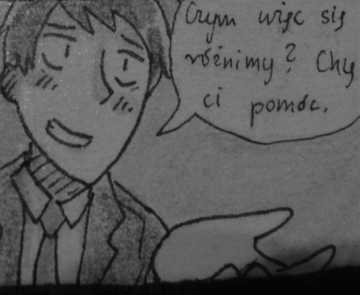 Czym więc się
różnimy? Chę
ci pomóc.